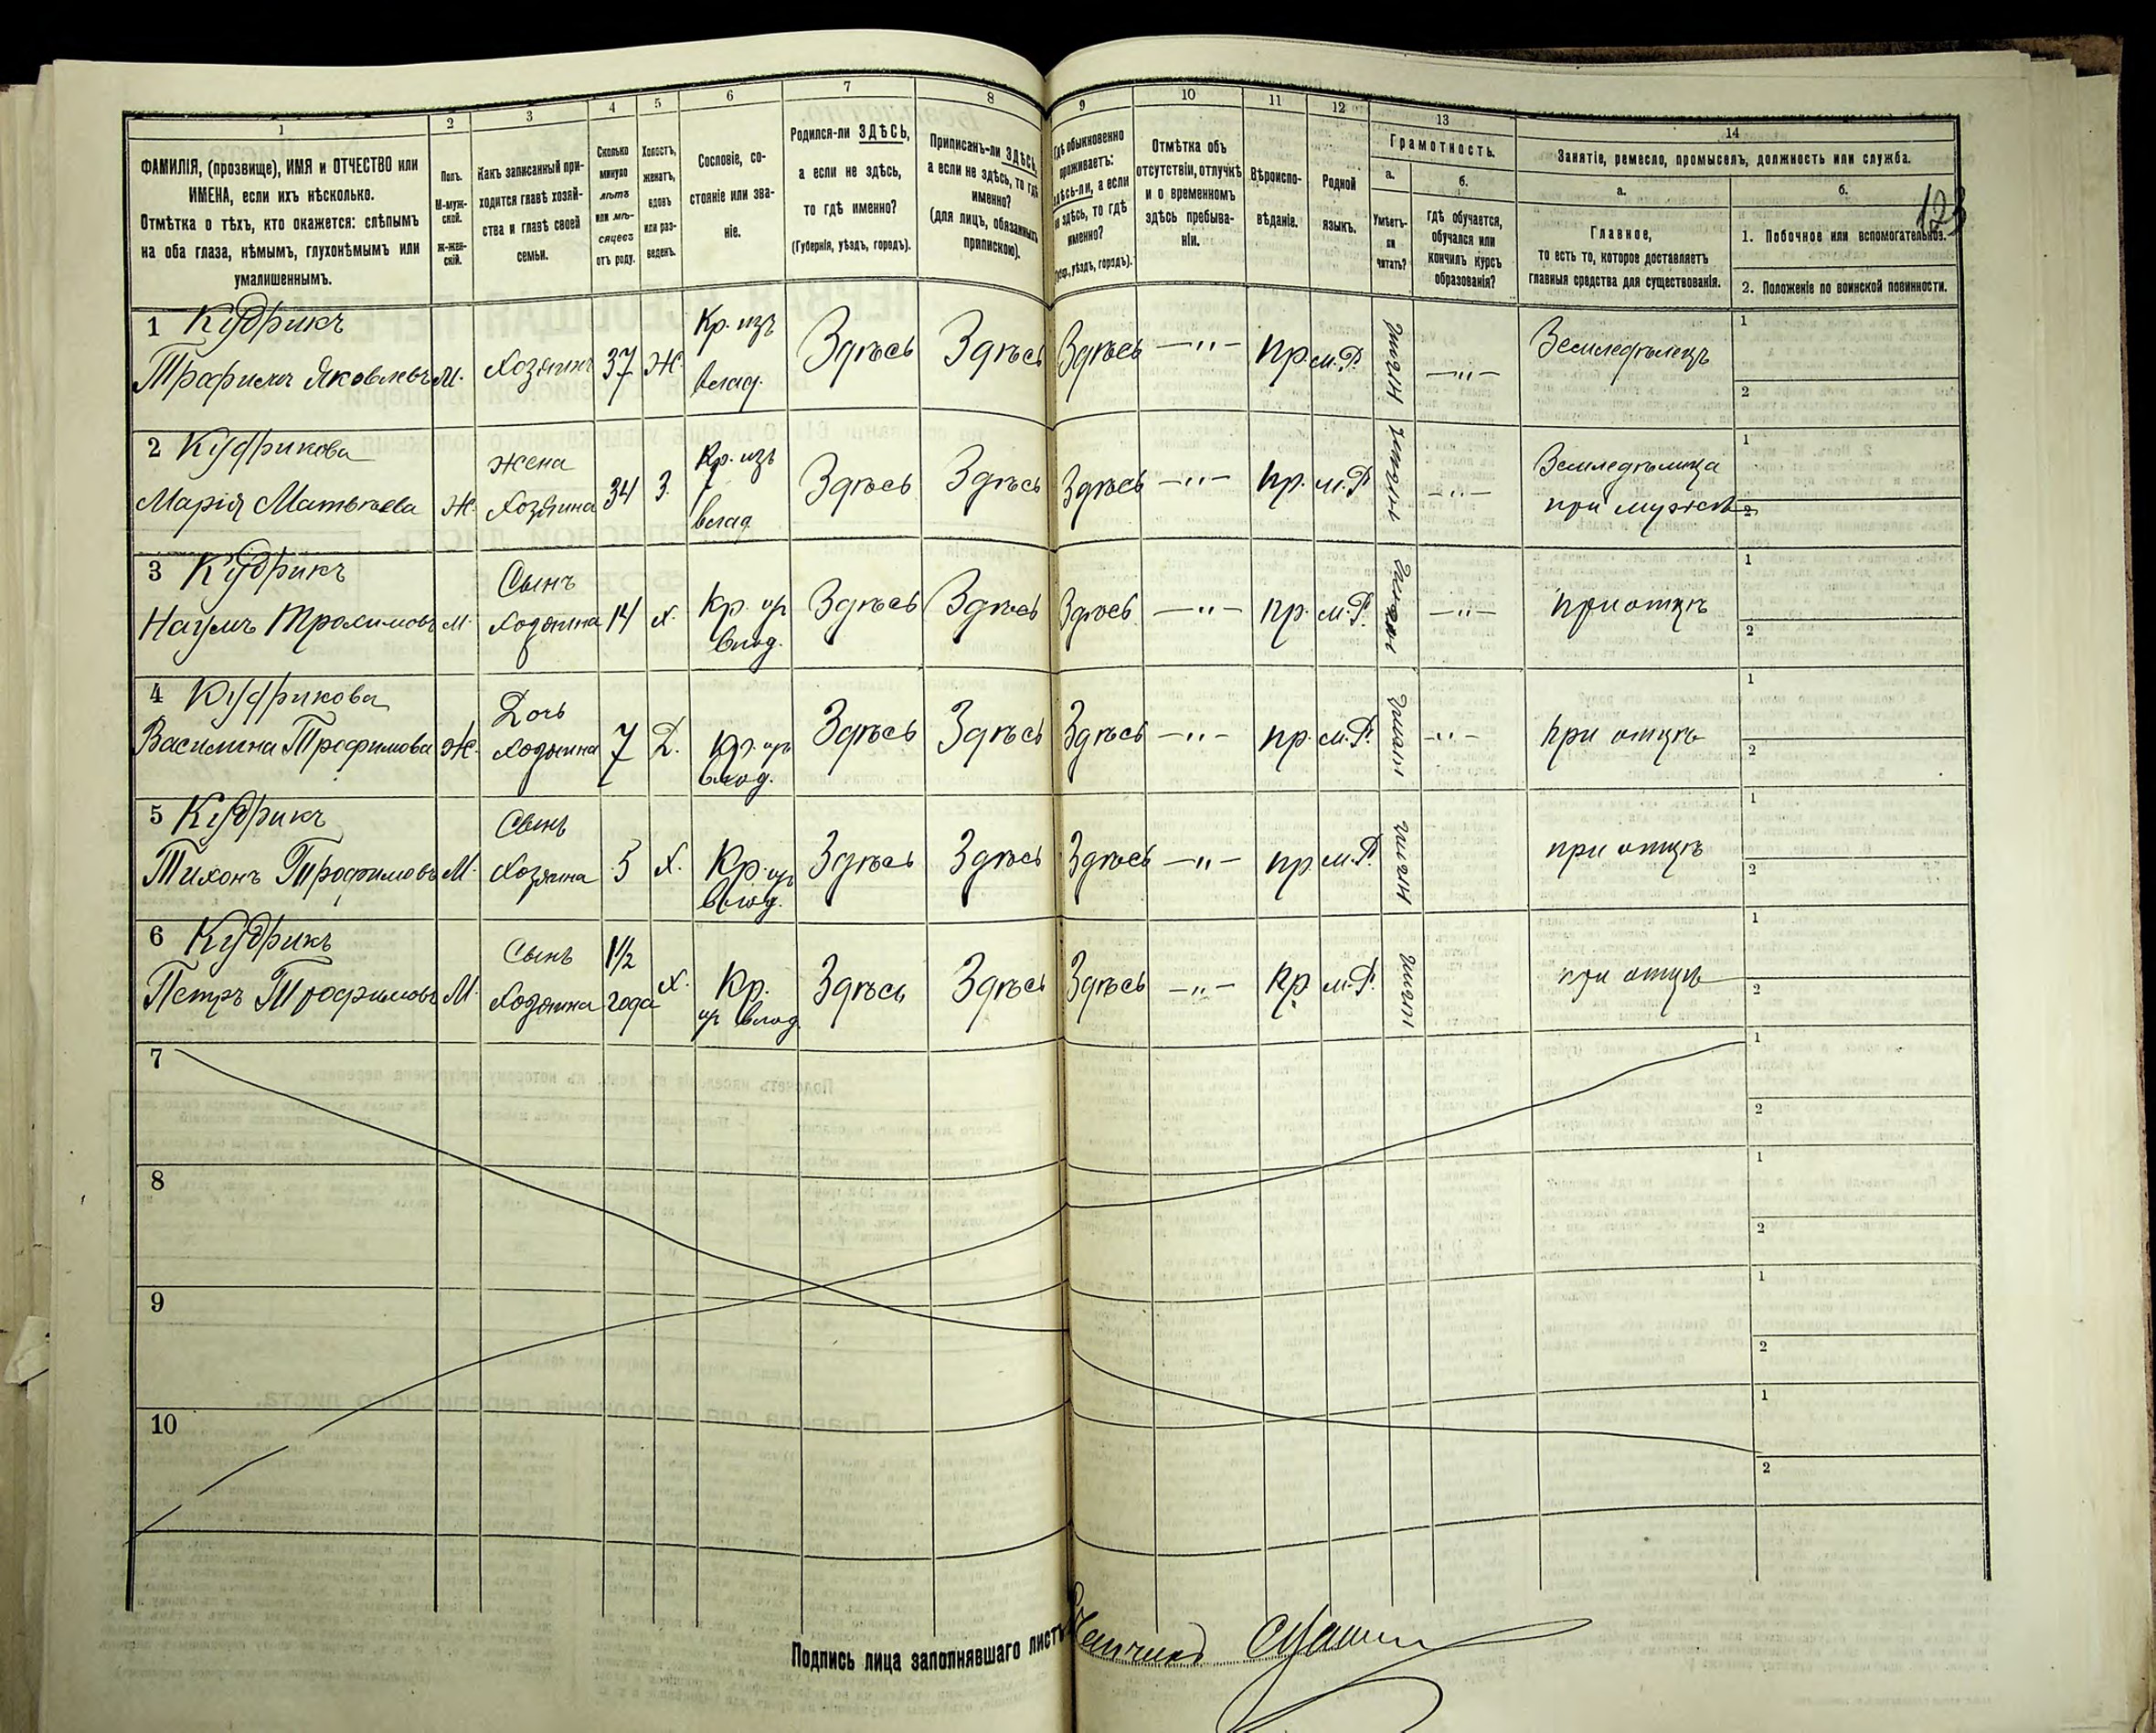 1
2
3
4
5
6
7
8
9
10
11
12
13
14
ФАМИЛІЯ, (прозвище), ИМЯ и ОТЧЕСТВО или
ИМЕНА, если ихъ нѣсколько.
Отмѣтка о тѣхъ, кто окажется: слѣпымъ
на оба глаза, нѣмымъ, глухонѣмымъ или
умалишеннымъ.
Полъ.
М-муж-
ской.
Ж-жен-
скій.
Какъ записанный при-
ходится главѣ хозяй-
ства и главѣ своей
семьи.
Сколько
минуло
лѣтъ
или мѣ-
сяцевъ
отъ роду.
Холостъ,
женатъ,
вдовъ
или раз-
веденъ.
Сословіе, со-
стояніе или зва-
ніе.
Родился-ли ЗДѢСЬ,
а если не здѣсь,
то гдѣ именно?
(Губернія, уѣздъ, городъ).
Приписанъ-ли ЗДѢСЬ,
а если не здѣсь, то гдѣ
именно?
(для лицъ, обязанныхъ
припискою).
Гдѣ обыкновенно
проживаетъ:
здѣсь-ли, а если
не здѣсь, то гдѣ
именно?
(Губ., уѣздъ, городъ).
Отмѣтка объ
отсутствіи, отлучкѣ
и о временномъ
здѣсь пребыва-
ніи.
Вѣроиспо-
вѣданіе.
Родной
языкъ.
Грамотность.
а.
Умѣетъ-
ли
читать?
б.
гдѣ обучается,
обучался или
кончилъ курсъ
образованія?
Занятіе, ремесло, промыселъ, должность или служба.
а.
Главное,
то есть то, которое доставляетъ
главныя средства для существованія.
б.
1. Побочное или вспомогательное.
2. Положеніе по воинской повинности.
123
1 Кудрикъ
Трафимъ Яковлевъ М. Хозяинъ 37 Ж. Кр. изъ влад. Здѣсь Здѣсь Здѣсь —"— пр. м.Р. нѣтъ —"— Земледѣлецъ
1
2
2 Кудрикова
Марія Матвѣева Ж. Жена Хозяина 34 З. Кр. изъ влад. Здѣсь Здѣсь Здѣсь —"— пр. м.Р. —"— Земледѣлица при мужѣ
1
2
3 Кудрикъ
Наумъ Трохимовъ М. Сынъ Хозяина 14 Х. Кр. из влад. Здѣсь Здѣсь Здѣсь —"— пр. м.Р. —"— при отцѣ
1
2
4 Кудрикова
Василина Трофимова Ж. Дочь Хозяина 7 Д. Кр. из влад. Здѣсь Здѣсь Здѣсь —"— пр. м.Р. —"— при отцѣ
1
2
5 Кудрикъ
Тихонъ Трофимовъ М. Сынъ Хозяина 5 Х. Кр. из влад. Здѣсь Здѣсь Здѣсь —"— пр. м.Р. при отцѣ
1
2
6 Кудрикъ
Петръ Трофимовъ М. Сынъ Хозяина 1½ года Х. Кр. из влад. Здѣсь Здѣсь Здѣсь —"— пр м.Р. при отцѣ
1
2
7
1
2
8
1
2
9
1
2
10
1
2
Подпись лица заполнявшаго листъ